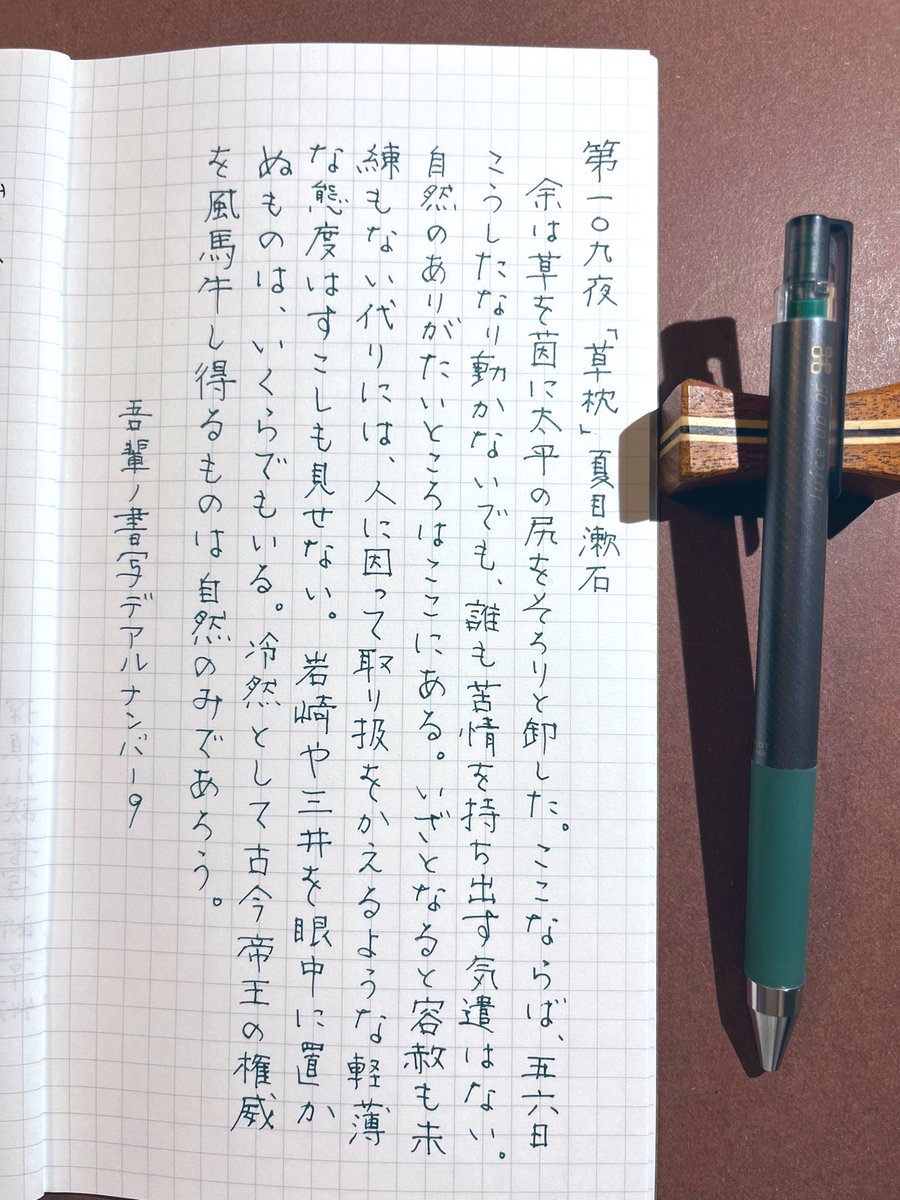 第一〇九夜「草枕」夏目漱石
余は草を茵に太平の尻をそろりと卸した。ここならば、五六日
こうしたなり動かないでも、誰も苦情を持ち出す気遣はない。
自然のありがたいところはここにある。いざとなると容赦も未
練もない代りには、人に因って取り扱をかえるような軽薄
な態度はすこしも見せない。岩崎や三井を眼中に置か
ぬものは、いくらでもいる。冷然として古今帝王の権威
を風馬牛し得るものは自然のみであろう。
吾輩ノ書写デアルナンバー9
Juice up 05